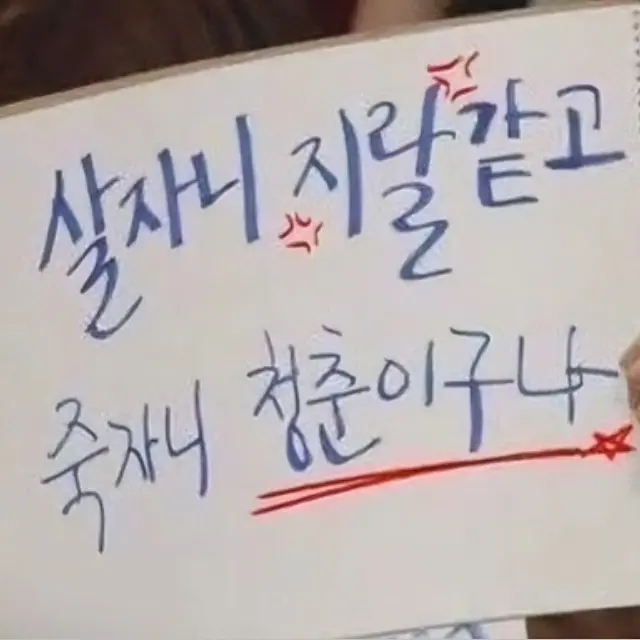 살자니 지랄같고
죽자니 청춘이구나